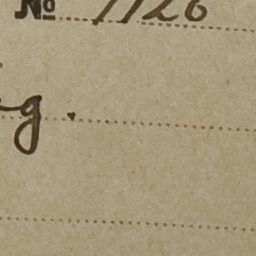 № 1126
g.